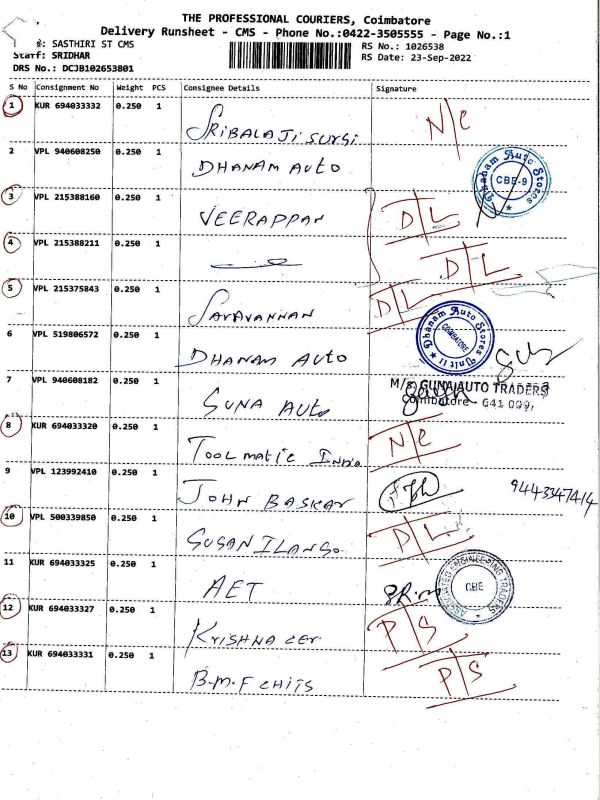 THE PROFESSIONAL COURIERS, Coimbatore
Delivery Runsheet - CMS - Phone No.:0422-3505555 - Page No.:1
: SASTHIRI ST CMS
RS No.: 1026538
Staff: SRIDHAR
RS Date: 23-Sep-2022
DRS No.: DCJB102653801
S No Consignment No Weight PCS Consignee Details Signature
1 KUR 694033332 0.250 1 SRIBALAJI SURGI N/C
2 VPL 940608250 0.250 1 DHANAM AUTO Dhanam Auto Stores CBE-9
3 VPL 215388160 0.250 1 VEERAPPAN D/L
4 VPL 215388211 0.250 1 D/L
5 VPL 215375843 0.250 1 SARAVANNAN D/L
6 VPL 519806572 0.250 1 DHANAM AUTO Dhanam Auto Stores Unit II COIMBATORE
7 VPL 940608182 0.250 1 GUNA AUTO M/s. GUNA AUTO TRADERS
Coimbatore - 641 009.
8 KUR 694033320 0.250 1 TOOLMATIC INDIA N/C
9 VPL 123992410 0.250 1 JOHN BASKAR 9443347414
10 VPL 500339850 0.250 1 SUSAN ILANGO D/L
11 KUR 694033325 0.250 1 AET ENGINEERING TRADERS CBE
12 KUR 694033327 0.250 1 KRISHNA CER P/S
13 KUR 694033331 0.250 1 B.M.F CHITS P/S